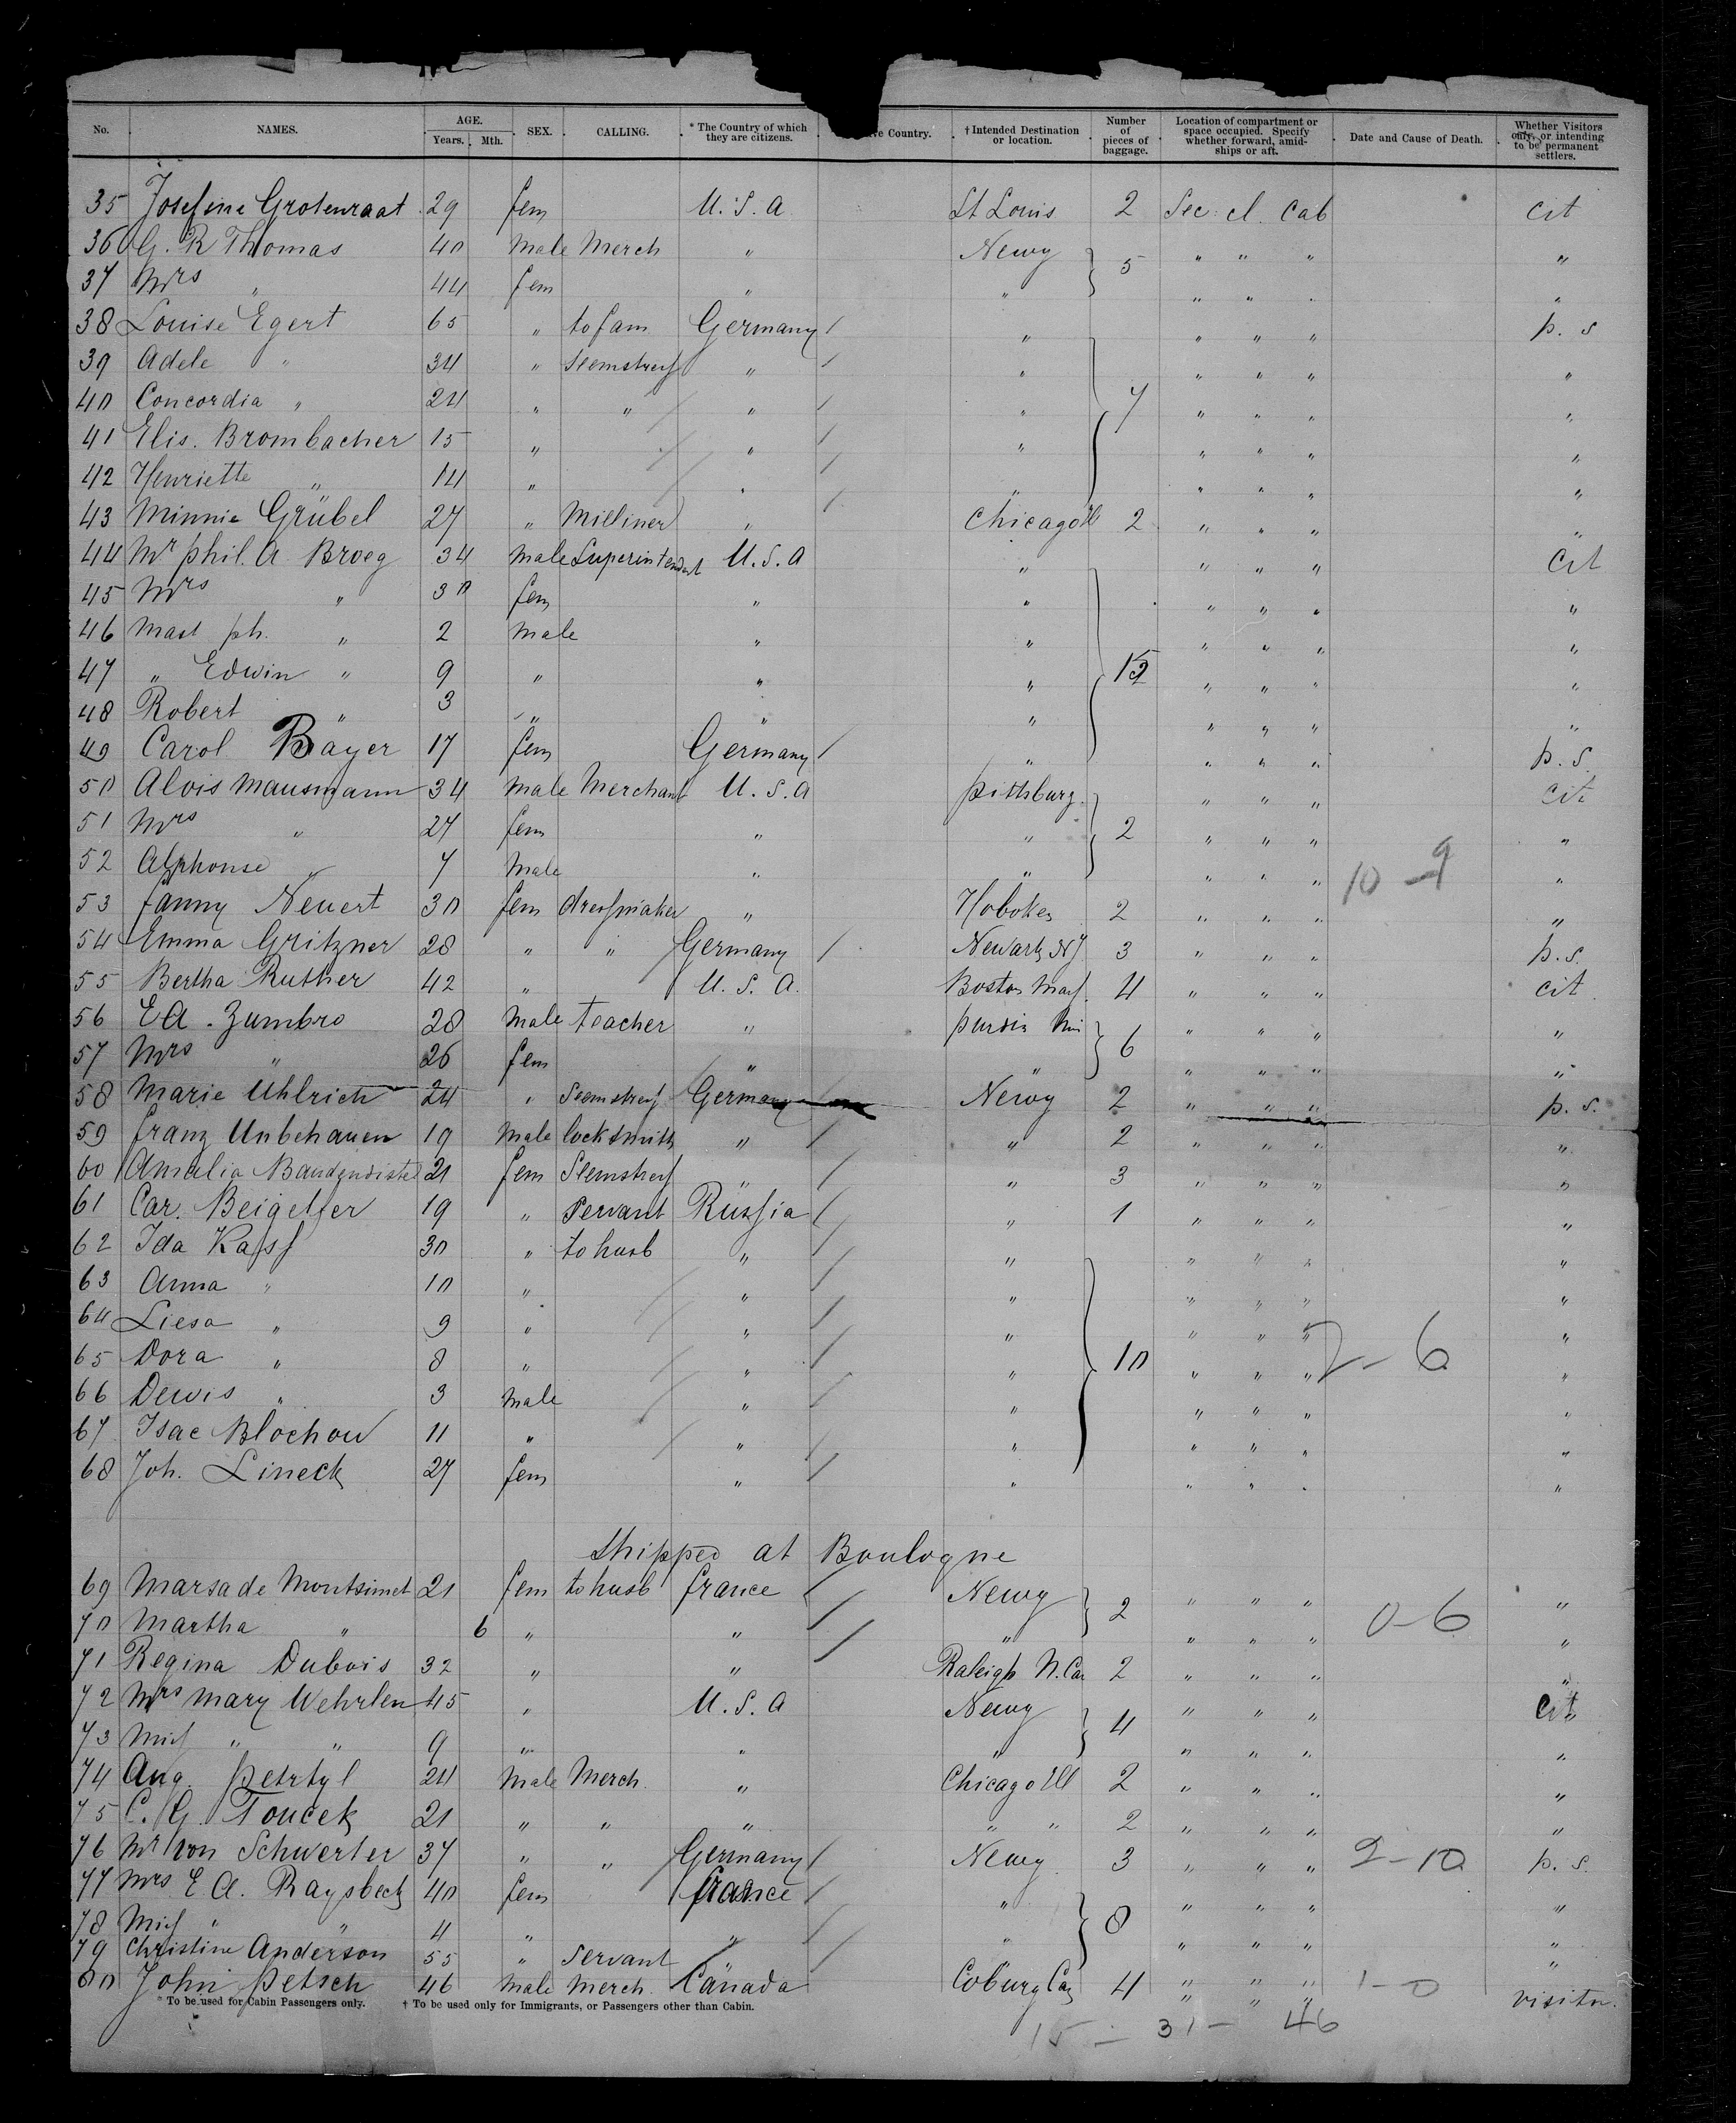 No. NAMES. AGE. Years. Mth. SEX. CALLING. * The Country of which they are citizens. ve Country. † Intended Destination or location. Number of pieces of baggage. Location of compartment or space occupied. Specify whether forward, amidships or aft. Date and Cause of Death. Whether Visitors only, or intending to be permanent settlers.
35 Josefine Grotenraat 29 fem U.S.A St Louis 2 Sec. cl. Cab cit
36 G. R Thomas 40 male Merch " Newy 5 " " " "
37 Mrs " 44 fem " " " " " "
38 Louise Egert 65 " to fam Germany / " " " " p. s
39 Adele " 34 " Seemstress " / " " " " "
40 Concordia " 24 " " " / " 7 " " " "
41 Elis. Brombacher 15 " " / " " " " "
42 Henriette " 14 " " / " " " " "
43 Minnie Grübel 27 " Milliner " / Chicago Ill 2 " " " "
44 Mr phil. A Broeg 34 male Superintendent U.S.A " " " " Cit
45 Mrs " 30 fem " " " " " "
46 Mast ph. " 2 male " " " " " "
47 " Edwin " 9 " " " " " " "
48 Robert " 3 " " " " " " "
49 Carol Bayer 17 fem Germany / " " " " p. s.
50 Alois Mausmann 34 male Merchant U.S.A pittsburg " " " cit
51 Mrs " 27 fem " " 2 " " " "
52 Alphonse " 7 male " " " " " 10 - 9 "
53 fanny Neuert 30 fem dressmaker " Hoboken 2 " " " "
54 Emma Gritzner 28 " " Germany / Newark NJ 3 " " " p. s.
55 Bertha Ruther 42 " U.S.A. Boston Mass. 4 " " " cit
56 E A. Zumbro 28 male teacher " 6 " " " "
57 Mrs " 26 fem " " " " " "
58 Marie Uhlrich 24 " Seemstress Germany Newy 2 " " " p. s.
59 franz Unbehauen 19 male locksmith " / " 2 " " " "
60 Amalia 21 fem Seemstress " / " 3 " " " "
61 Car. 19 " Servant Russia / " 1 " " " "
62 Ida Kass 30 " to husb " / " " " " "
63 Anna " 10 " " / " " " " "
64 Liesa " 9 " " / " " " " "
65 Dora " 8 " " / " 10 " " " 2 - 6 "
66 Dewis " 3 male " / " " " " "
67 Isac Blochow 11 " " / " " " " "
68 Joh. Lineck 27 fem " / " " " " "
Shipped at Boulogne
69 Marsa de Montsimet 21 fem to husb france / Newy 2 " " " "
70 Martha " 6 " " / " " " " 0-6 "
71 Regina Dubois 32 " " / Raleigh N. Car 2 " " " "
72 Mrs Mary Wehrlen 45 " U.S.A Newy 4 " " " Cit
73 Miss " " 9 " " " " " " "
74 Aug. Petrtyl 24 male Merch. " Chicago Ill 2 " " " "
75 C. G. Toucek 21 " " " " " 2 " " " "
76 Mr von Schwerter 37 " " Germany / Newy 3 " " " 2-10 p. s.
77 Mrs E A. Raysbeck 40 fem france / " 8 " " " "
78 Miss " " 4 " " / " " " " "
79 Christine Anderson 55 " Servant " / " " " "
80 John Petsch 46 male Merch. Canada Coburg Ca 4 " " " 1-0 visitor.
* To be used for Cabin Passengers only. † To be used only for Immigrants, or Passengers other than Cabin.
15 - 31 - 46